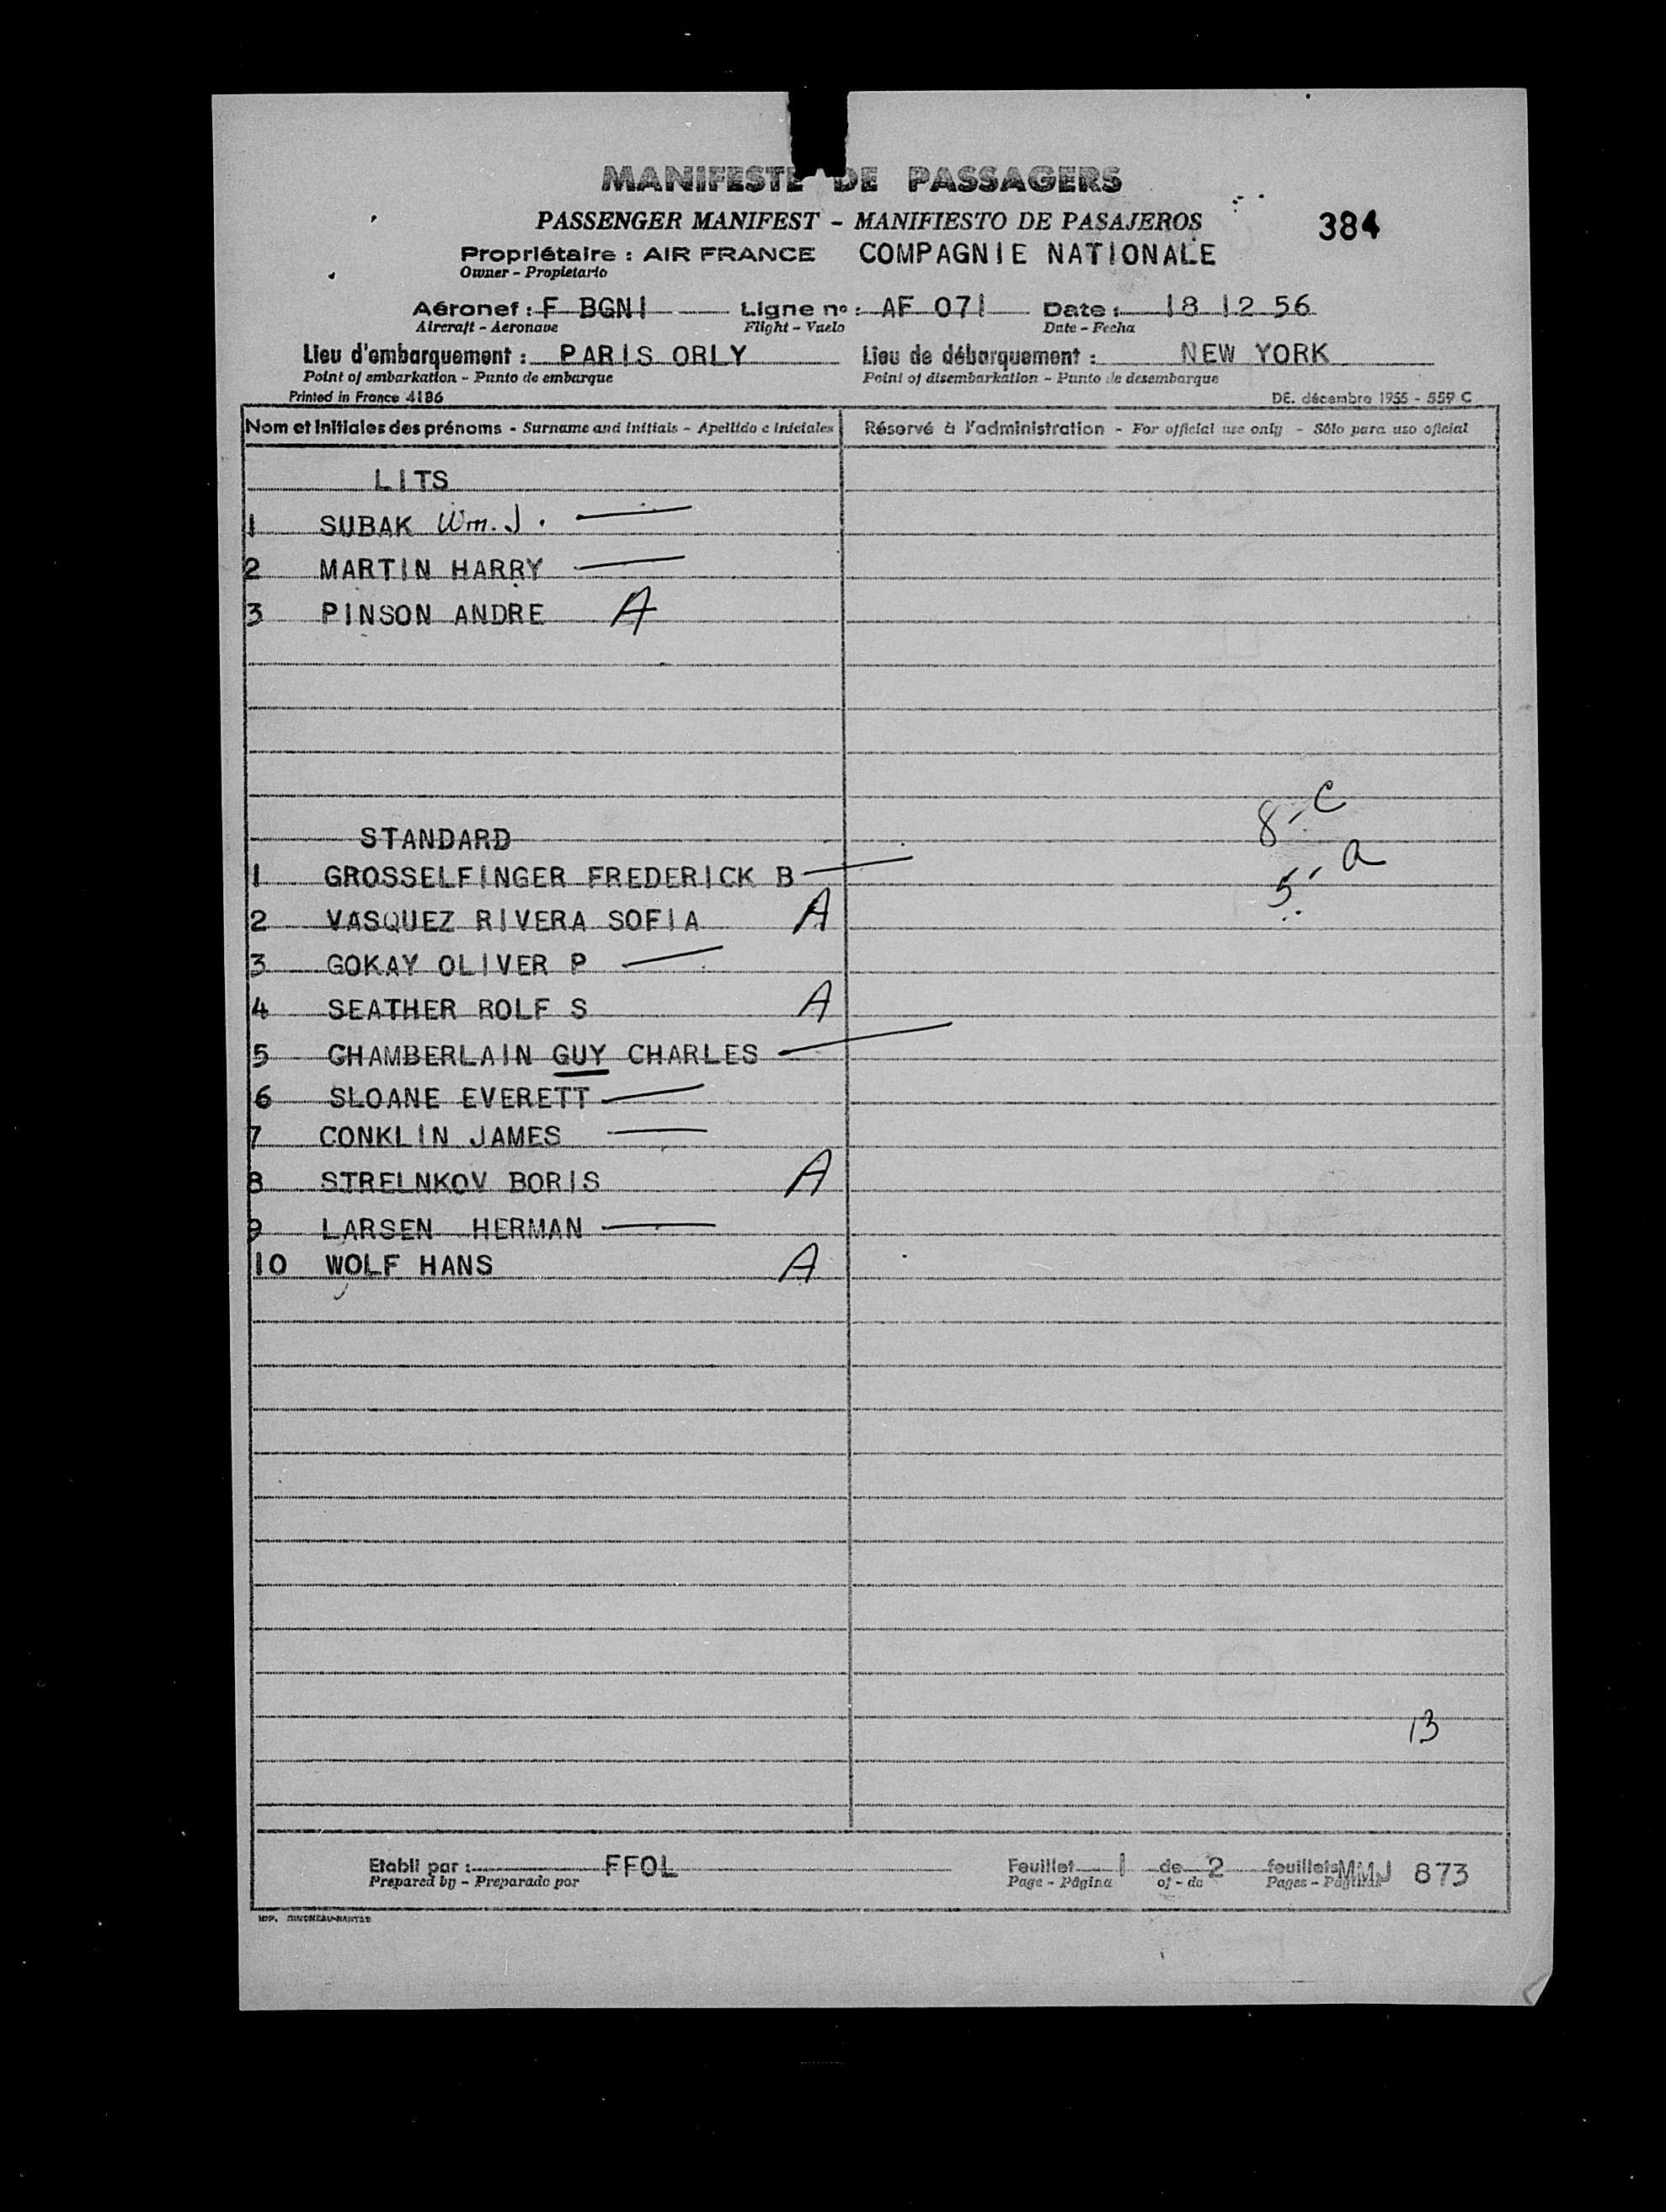 MANIFESTE DE PASSAGERS
PASSENGER MANIFEST - MANIFIESTO DE PASAJEROS
384
Propriétaire : AIR FRANCE COMPAGNIE NATIONALE
Owner - Propietario
Aéronef : F BGNI Ligne nº : AF 071 Date : 18 12 56
Aircraft - Aeronave Flight - Vuelo Date - Fecha
Lieu d'embarquement : PARIS ORLY Lieu de débarquement : NEW YORK
Point of embarkation - Punto de embarque Point of disembarkation - Punto de desembarque
Printed in France 4186 DE. décembre 1955 - 559 C
Nom et initiales des prénoms - Surname and initials - Apellido e iniciales Réservé à l'administration - For official use only - Sólo para uso oficial
LITS
1 SUBAK Wm. J.
2 MARTIN HARRY
3 PINSON ANDRE A
8 - C
STANDARD
5 - a
1 GROSSELFINGER FREDERICK B
2 VASQUEZ RIVERA SOFIA A
3 GOKAY OLIVER P
4 SEATHER ROLF S A
5 CHAMBERLAIN GUY CHARLES
6 SLOANE EVERETT
7 CONKLIN JAMES
8 STRELNKOV BORIS A
9 LARSEN HERMAN
10 WOLF HANS A
13
Etabli par : FFOL Feuillet 1 de 2 feuillets MMJ 873
Prepared by - Preparado por Page - Página of - de Pages - Páginas